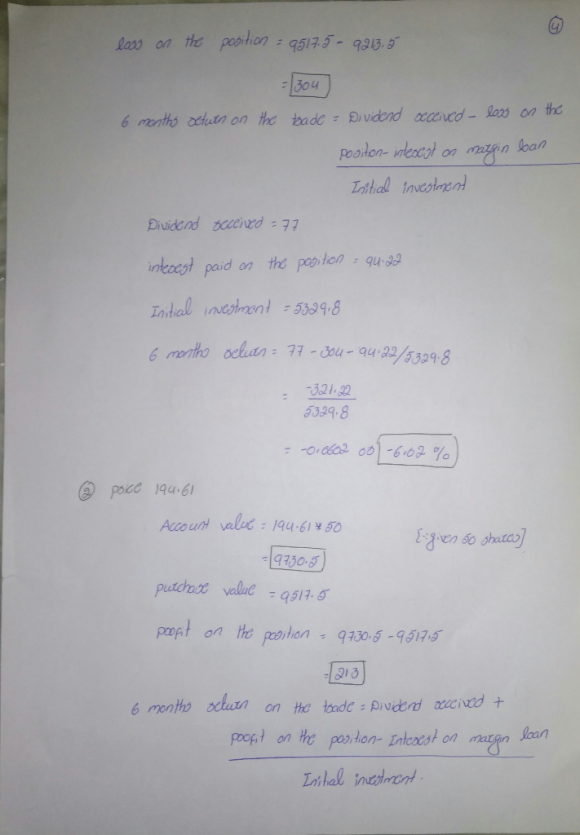 4
loss on the position = 9517.5 - 9213.5
= 304
6 months return on the trade = Dividend received - loss on the
position - interest on margin loan
Initial investment
Dividend received = 77
interest paid on the position = 94.22
Initial investment = 5329.8
6 months return = 77 - 304 - 94.22/5329.8
= -321.22
5329.8
= -0.0602 or -6.02 %
2 price 194.61
Account value = 194.61 * 50 [∵ given 50 shares]
= 9730.5
purchase value = 9517.5
profit on the position = 9730.5 - 9517.5
= 213
6 months return on the trade = Dividend received +
profit on the position - Interest on margin loan
Initial investment.